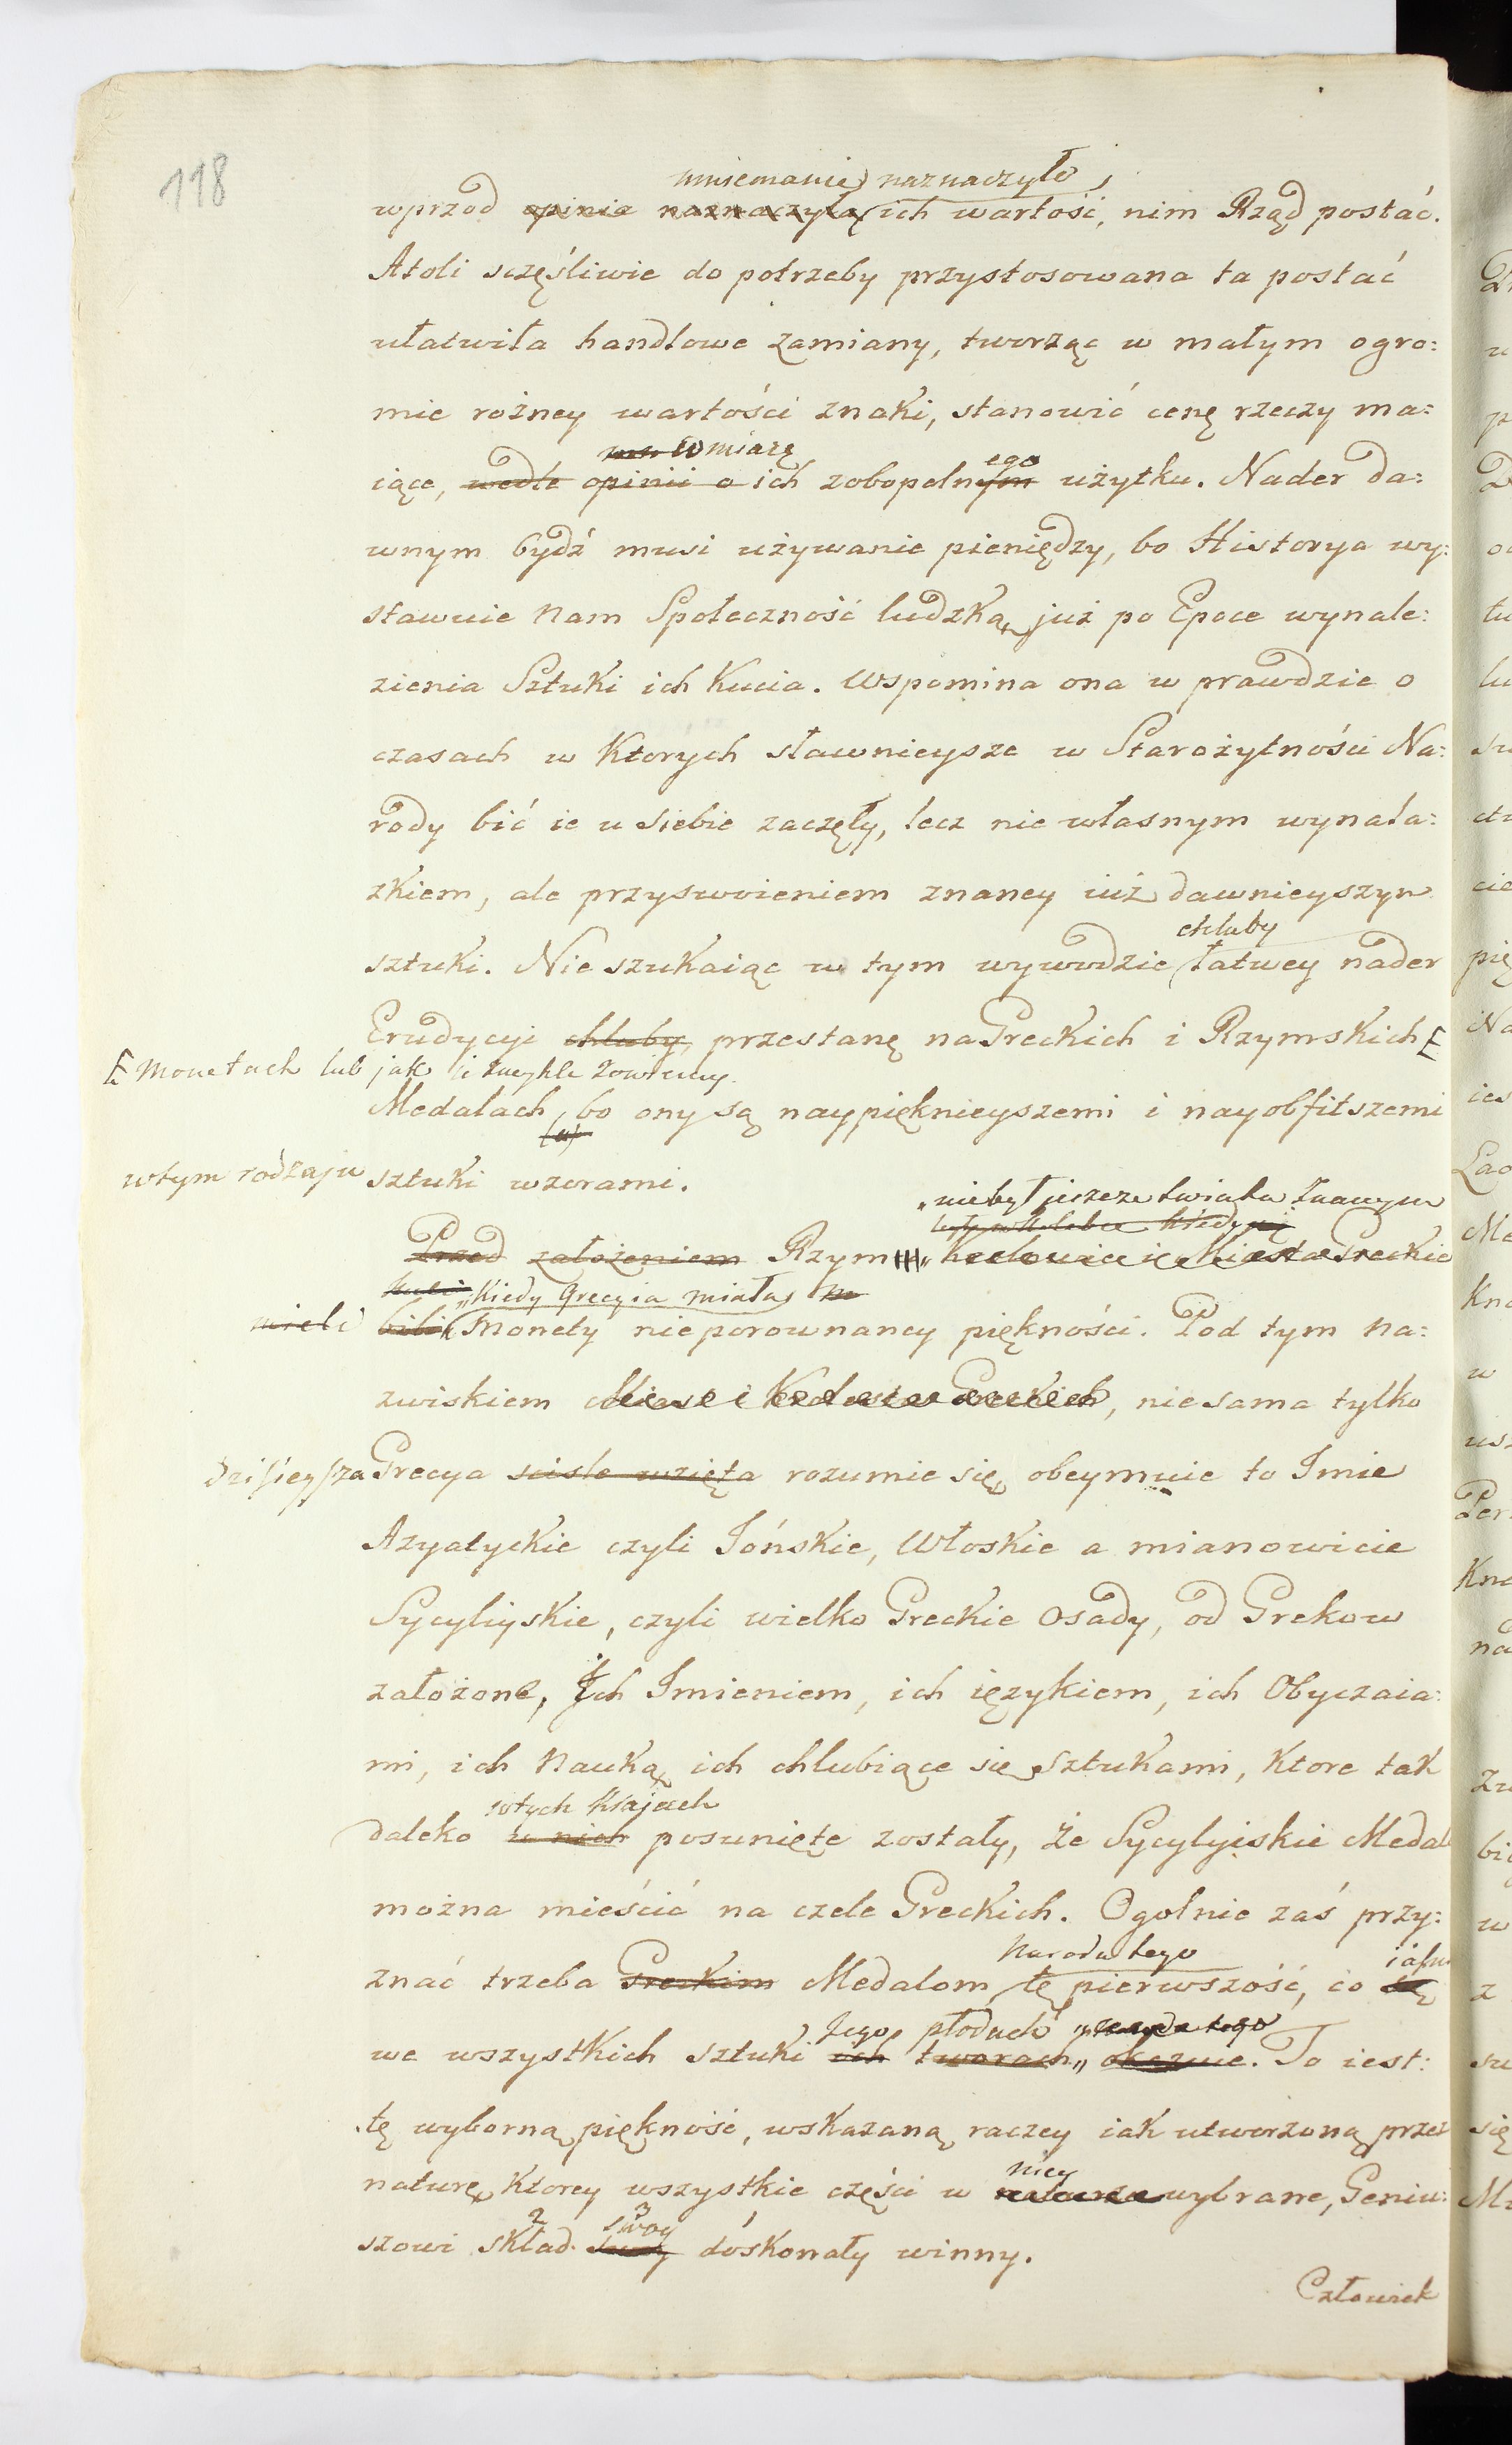 118
mniemanie naznaczyło,
wprzod opinia naznaczyła ich wartość, nim Rząd postać.
Atoli sczęśliwie do potrzeby przystosowana ta postać
ułatwiła handlowe zamiany, tworząc w małym ogro:
mie rożney wartości znaki, stanowić cenę rzeczy ma:
w miarę ego
iące, wedle opinii o ich zobopolnym użytku. Nader da:
wnym bydź musi używanie pieniędzy, bo Historya wy:
stawuie nam Społeczność ludzką, już po Epoce wynale:
zienia Sztuki ich kucia. Wspomina ona w prawdzie o
czasach w ktorych sławnieysze w Starożytności Na:
rody bić ie u siebie zaczęły, lecz nie własnym wynala:
zkiem, ale przyswoieniem znaney iuż dawnieyszym
chluby
sztuki. Nie szukaiąc w tym wywodzie łatwey nader
Erudycyi chluby, przestanę na Greckich i Rzymskich
monetach lub jak i zwykle zowiemy
Medalach, bo ony są naypięknieyszemi i nayobfitszemi
(a)
w tym rodzaju sztuki wzorami.
niebył jeszcze światu znanym
kiedy
Przed założeniem Rzym Krolowie i Miasta Greckie
kiedy Grecyia miała
mieli bili Monety nieporownaney piękności. Pod tym na:
zwiskiem Miast i Krolestw Greckich, nie sama tylko
dzisieysza Grecya scisle wzięta rozumie się, obeymuie to Imie
Azyatyckie czyli Jońskie, Włoskie a mianowicie
Sycyliyskie, czyli wielko Greckie osady, od Grekow
założone, ich Imieniem, ich ięzykiem, ich Obyczaia:
mi, ich Nauką, ich chlubiące się Sztukami, ktore tak
w tych krajach
daleko u nich posunięte zostały, że Sycylyiskie Medal
można mieścić na czele Greckich. Ogolnie zaś przy:
Narodu tego iaśn
znać trzeba Greckim Medalom, tę pierwszość, co
Jego płodach
we wszystkich sztuki ich tworach okazuie. To iest:
tę wyborną piękność, wskazaną raczey iak utworzoną przez
niey
naturę, ktorey wszystkie części w naturze wybrane, Geniu:
2 swoy 3 1
szowi skład swoy doskonały winny.
Człowiek